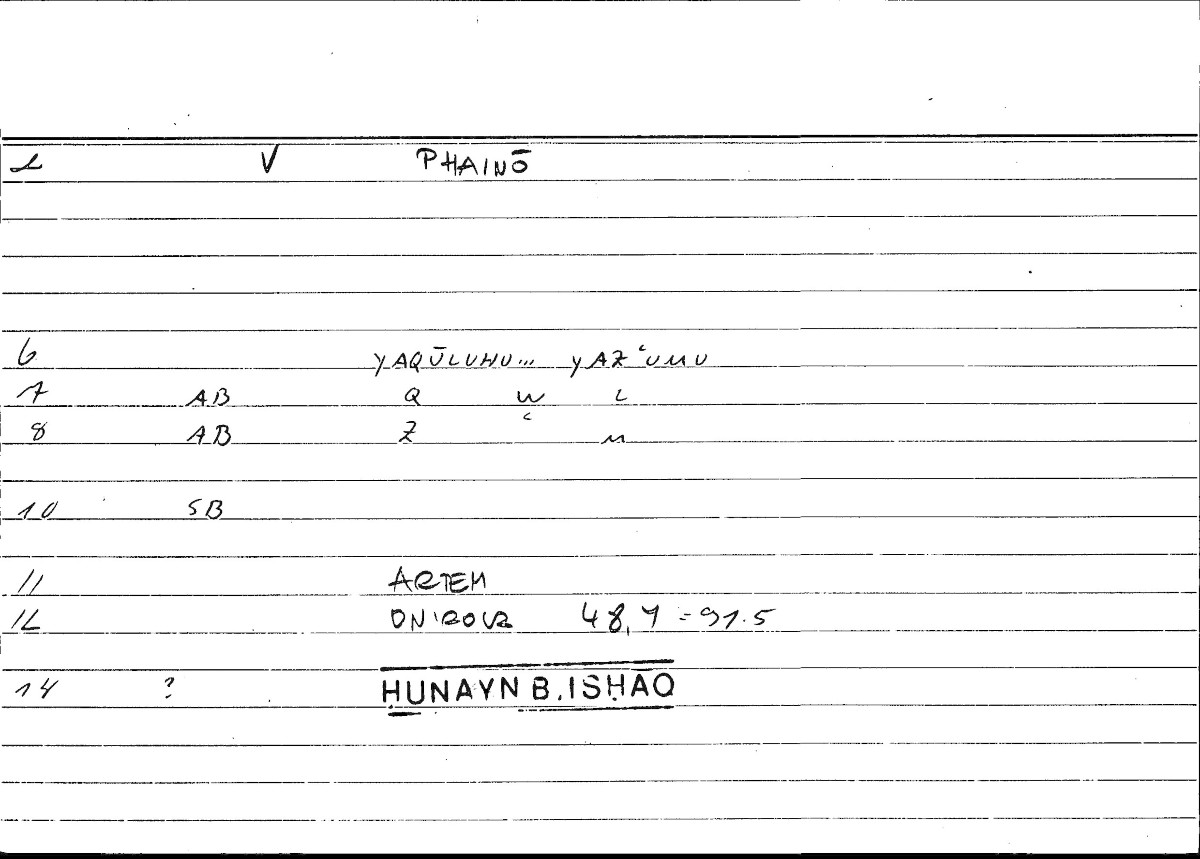 2 V PHAINŌ
6 YAQŪLUHU... YAZʿUMU
7 AB Q W L
8 AB Z ʿ M
10 SB
11 ARTEM
12 48,7 = 91.5
14 ? ḤUNAYN B. ISḤĀQ